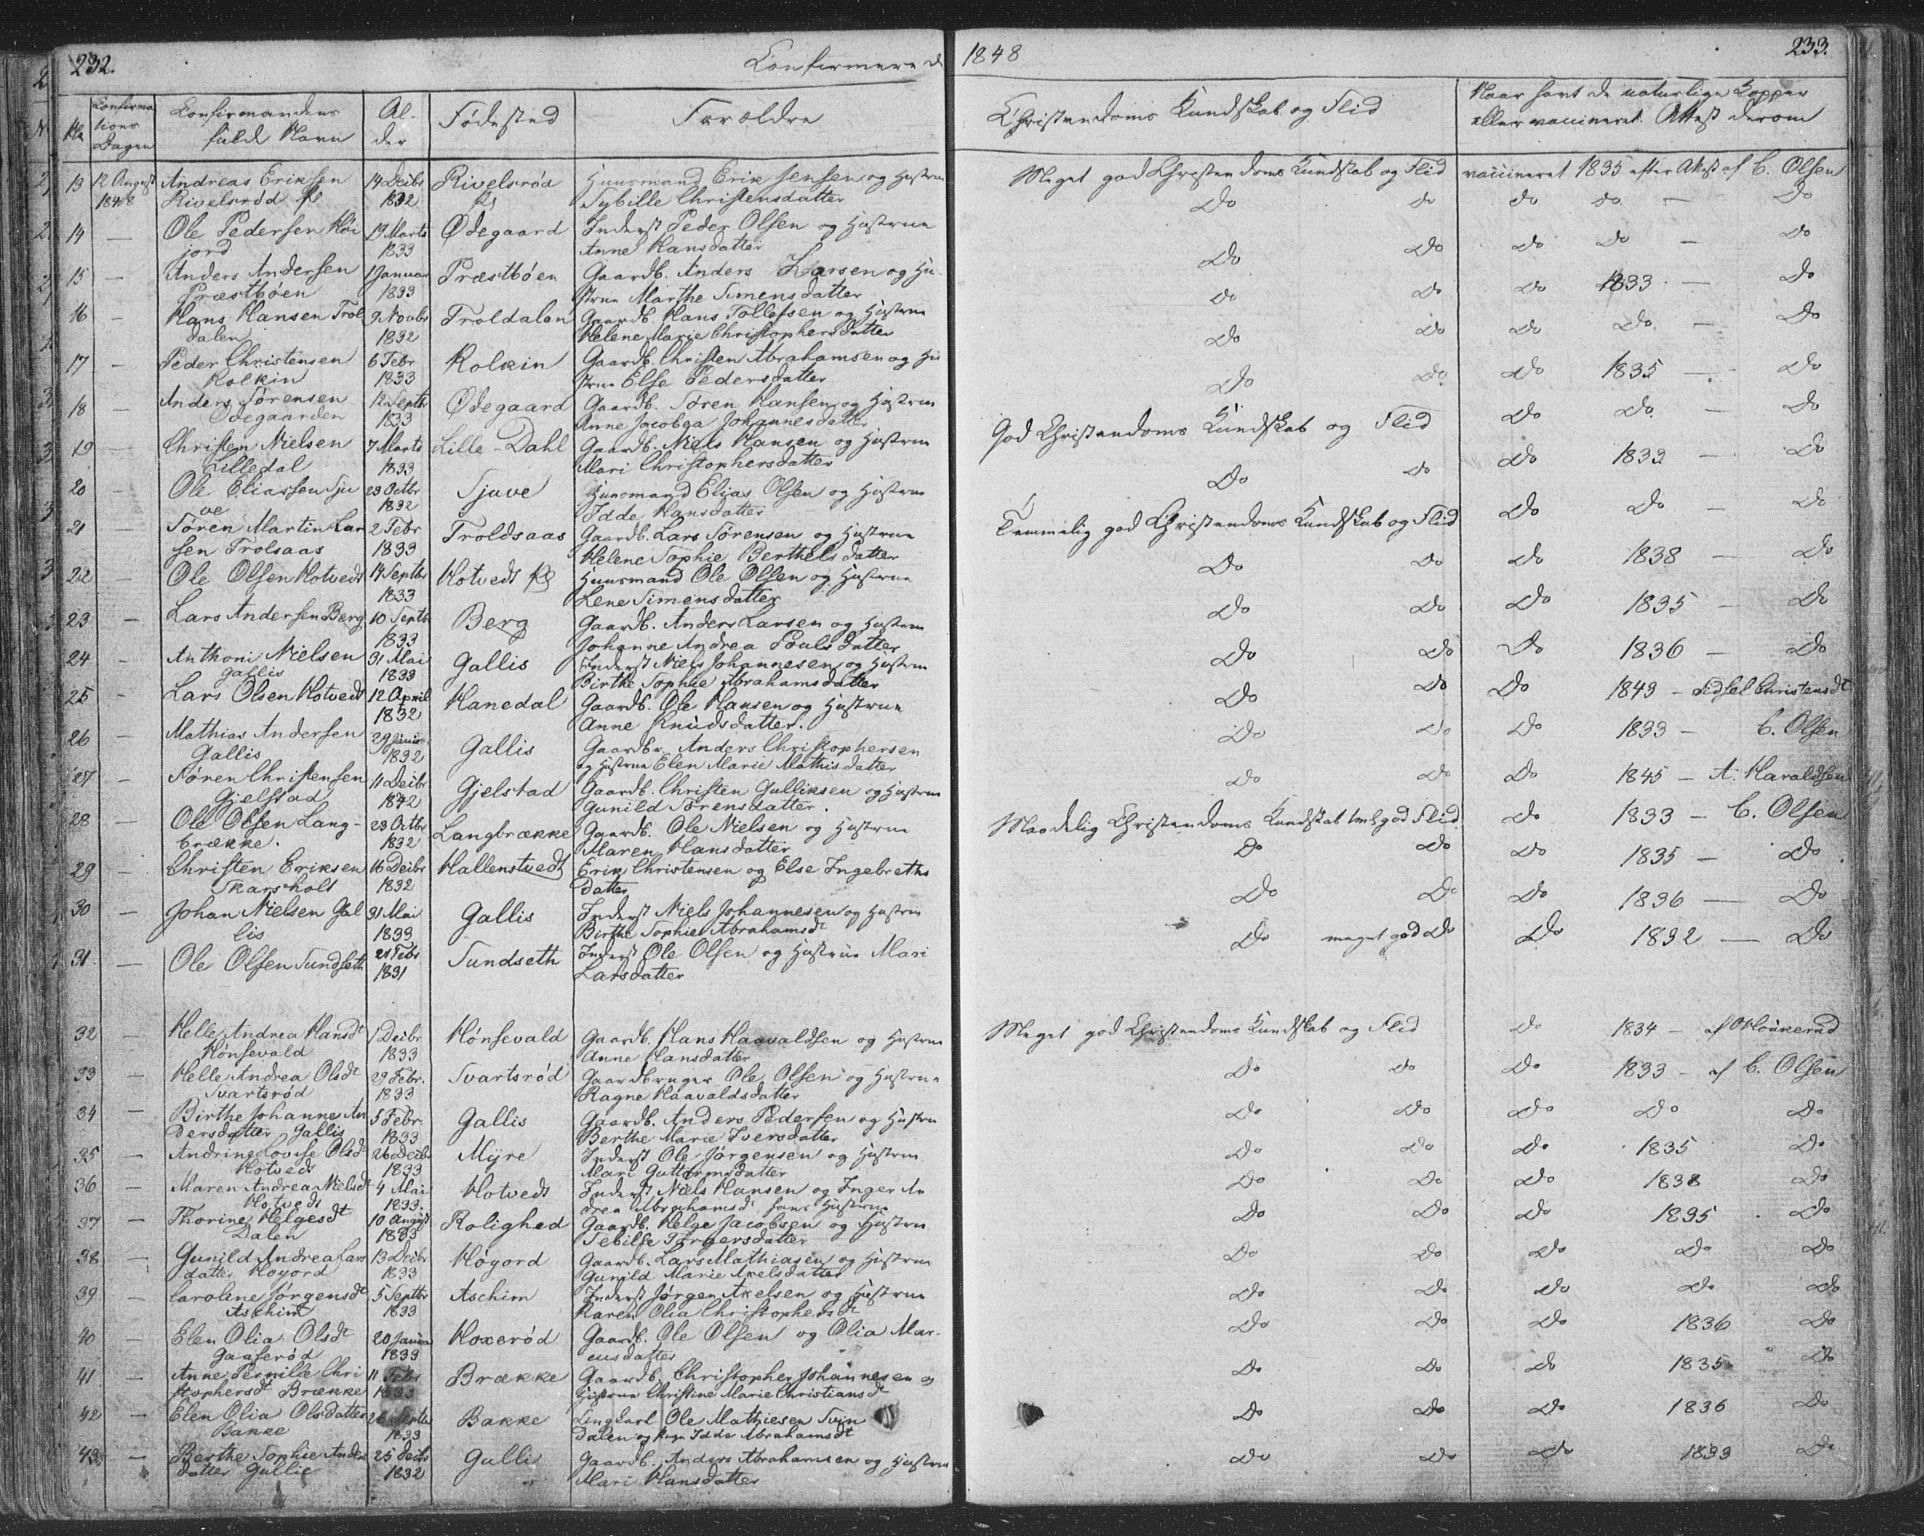 232.
Confirmerede
1848
233.
No
Confirmations Dagen
Confirmandens fulde Navn
Alder
Fødested
Forældre
Christendoms Kundskab og Flid
Naar havt de naturlige Kopper
eller vaccineret. Attest derom
13 12 August 1848 Andreas Eriksen Rivelsrød 14 Decbr 1832 Rivelsrød Huusmand Erik Jensen og Hustrue Sybille Christensdatter Meget god Christendoms Kundskab og Flid vaccineret 1835 efter Attest af C. Olsen
14 — Ole Pedersen Høijord 13 Marts 1833 Ødegaard Inderst Peder Olsen og Hustrue Anne Hansdatter Do Do Do Do — Do
15 — Anders Andersen Præstbøen 1 Januar 1833 Præstbøen Gaardb. Anders Larsen og Hustrue Marthe Simensdatter Do Do Do Do — Do
16 — Hans Hansen Troldalen 9 Novbr 1832 Troldalen Gaardb. Hans Tollefsen og Hustrue Helene Marie Christophersdatter Do Do Do 1833 — Do
17 — Peder Christensen Kolkin 6 Febr 1833 Kolkin Gaardb. Christen Abrahamsen og Hustrue Else Pedersdatter Do Do Do Do — Do
18 — Anders Sørensen Ødegaarden 12 Septbr 1833 Ødegaard Gaardb. Søren Hansen og Hustrue Anne Jacobea Johannesdatter Do Do Do 1835 — Do
19 — Christen Nielsen Lilledal 7 Marts 1833 Lille-Dahl Gaardb. Niels Hansen og Hustrue Mari Christophersdatter God Christendoms Kundskab og Flid Do Do — Do
20 — Ole Eliassen Sjuve 23 Octbr 1832 Sjuve Huusmand Elias Olsen og Hustrue Idde Hansdatter Do Do Do 1833 — Do
21 — Søren Martin Larsen Trolsaas 2 Febr 1833 Troldsaas Gaardb. Lars Sørensen og Hustrue Helene Sophie Berthelsdatter Temmelig god Christendoms Kundskab og Flid Do Do — Do
22 — Ole Olsen Hotvedt 14 Septbr 1833 Hotvedt Huusmand Ole Olsen og Hustrue Lene Simensdatter Do Do Do 1838 — Do
23 — Lars Andersen Berg 10 Septb 1833 Berg Gaardb. Anders Larsen og Hustrue Johanne Andrea Poulsdatter Do Do Do 1835 — Do
24 — Anthoni Nielsen Gallis 31 Mai 1833 Gallis Inderst Niels Johannesen og Hustrue Birthe Sophie Abrahamsdatter Do Do Do 1836 — Do
25 — Lars Olsen Hotvedt 12 April 1832 Hanedal Gaardb. Ole Hansen og Hustrue Anne Knudsdatter. Do Do Do 1843 — Sidsel Christensdt
26 — Mathias Andersen Gallis 29 Januar 1832 Gallis Gaardbr. Anders Christophersen og Hustrue Elen Marie Mathisdatter Do Do Do 1833 — C. Olsen
27 — Søren Christensen Gjelstad 11 Decbr 1832 Gjelstad Gaardb. Christen Gulliksen og Hustrue Gunild Sørensdatter. Do Do Do 1845 — A. Haraldsen
28 — Ole Olsen Langbrække. 23 Octbr 1832 Langbrække Gaardb. Ole Nielsen og Hustrue Maren Hansdatter Maadelig Christendoms Kundskab god Flid Do 1833 — C. Olsen
29 — Christen Eriksen Skarsholt 16 Decbr 1832 Hallenstvedt Erik Christensen og Else Ingebrethsdatter Do Do Do 1835 — Do
30 — Johan Nielsen Gallis 31 Mai 1833 Gallis Inderst Niels Johannesen og Hustrue Birthe Sophie Abrahamsdt Do Do Do 1836 — Do
31 — Ole Olsen Sundseth 21 Febr 1831 Sundseth Inderst Ole Olsen og Hustrue Mari Larsdatter Do meget god Do Do 1832 — Do
32 — Helle Andrea Hansdt Hønsevald 1 Decbr 1833 Hønsevald Gaardb. Hans Haavaldsen og Hustrue Anne Hansdatter Meget god Christendoms Kundskab og Flid Do 1834 —
33 — Helle Andrea Olsdt Svartsrød 23 Febr. 1833 Svartsrød Gaardbruger Ole Olsen og Hustrue Ragne Haavaldsdatter Do Do Do 1833 — af C. Olsen
34 — Birthe Johanne Andersdatter Gallis 5 Febr. 1833 Gallis Gaardb. Anders Pedersen og Hustrue Berthe Marie Iversdatter Do Do Do Do Do
35 — Andrine Lovise Olsdt Hotvedt 26 Decbr 1833 Myre Inderst Ole Jørgensen og Hustrue Mari Guttormsdatter Do Do Do 1835 Do
36 — Maren Andrea Nielsdt Hotvedt 4 Mai 1833. Hotvedt Inderst Niels Hansen og Inger Andrea Abrahamsdt hans Hustrue Do Do Do 1838 Do
37 — Thorine Helgesdt Dalen 10 August 1833 Rolighed Gaardb. Helge Jacobsen og Hustrue Sebille Torgersdatter Do Do Do 1835 Do
38 — Gunild Andrea Larsdatter Høyord 13 Decbr 1833 Høyord Gaardb. Lars Mathiasen og Hustrue Gunild Marie Axelsdatter Do Do Do Do Do
39 — Caroline Jørgensdt Aschim 5 Septbr 1833 Aschim Inderst Jørgen Axelsen og Hustrue Karen Olia Christophersdt Do Do Do Do Do
40 — Elen Olia Olsdt Gaaserød 20 Januar 1833 Hoxerød Gaardb. Ole Olsen og Olia Marensdatter Do Do Do 1836 Do
41 — Anne Pernille Christophersdt Brække 11 Febr 1833 Brække Gaardb. Christopher Johannesen og Hustrue Christine Marie Christiansdt Do Do Do 1835 Do
42 — Elen Olia Olsdatter Bakke 26 Septbr 1833 Bakke Ungkarl Ole Mathiesen Svindalen og Pige Idde Abrahamsdt Do Do Do 1836 Do
43 — Berthe Sophie Andersdatter Gullie 25 Decbr 1832 Gulli Gaardb. Anders Abrahamsen og Hustrue Mari Hansdatter Do Do Do 1833 Do